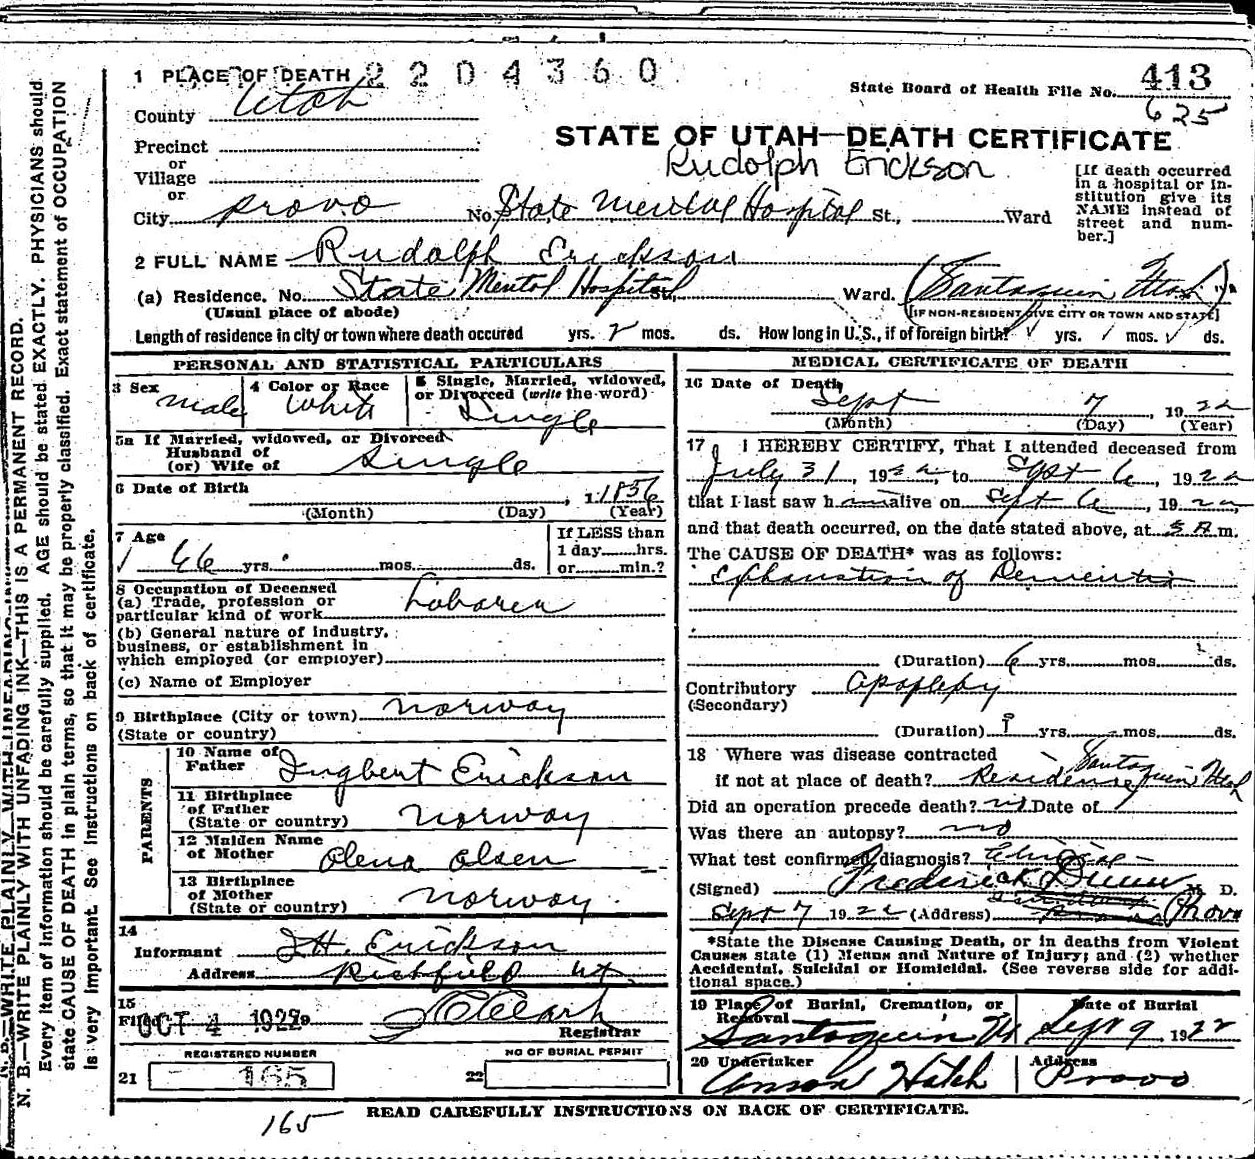 1 PLACE OF DEATH 2204360
State Board of Health File No. 413
625
County Utah
STATE OF UTAH—DEATH CERTIFICATE
Rudolph Erickson
Precinct
or
Village
or
City Provo No. State Mental Hospital St., Ward
[If death occurred
in a hospital or in-
stitution give its
NAME instead of
street and num-
ber.]
2 FULL NAME Rudolph Erickson
(a) Residence. No. State Mental Hospital St., Ward. (Santaquin Utah)
(Usual place of abode)
[IF NON-RESIDENT GIVE CITY OR TOWN AND STATE]
Length of residence in city or town where death occured yrs. 2 mos. ds. How long in U.S., if of foreign birth? yrs. mos. ds.
PERSONAL AND STATISTICAL PARTICULARS
3 Sex 4 Color or Race 5 Single, Married, widowed,
or Divorced (write the word)
male White Single
5a If Married, widowed, or Divorced
Husband of
(or) Wife of Single
6 Date of Birth
, 1 1856
(Month) (Day) (Year)
7 Age
66 yrs. mos. ds.
If LESS than
1 day hrs.
or min.?
8 Occupation of Deceased
(a) Trade, profession or
particular kind of work Laborer
(b) General nature of industry,
business, or establishment in
which employed (or employer)
(c) Name of Employer
9 Birthplace (City or town) Norway
(State or country)
PARENTS
10 Name of
Father Ingbert Erickson
11 Birthplace
of Father
(State or country) Norway
12 Maiden Name
of Mother Olena Olsen
13 Birthplace
of Mother
(State or country) Norway
14
Informant J H. Erickson
Address Richfield Ut.
15
OCT 4 1922
Registrar
REGISTERED NUMBER
21 165
NO OF BURIAL PERMIT
22
MEDICAL CERTIFICATE OF DEATH
16 Date of Death
Sept 7, 1922
(Month) (Day) (Year)
17 I HEREBY CERTIFY, That I attended deceased from
July 31, 1922, to Sept 6, 1922
that I last saw h im alive on Sept 6, 1922,
and that death occurred, on the date stated above, at 5 A m.
The CAUSE OF DEATH* was as follows:
Exhaustion of Dementia
(Duration) 6 yrs. mos. ds.
Contributory Apoplexy
(Secondary)
(Duration) yrs. mos. ds.
18 Where was disease contracted
if not at place of death? Residence Santaquin Utah
Did an operation precede death? no Date of
Was there an autopsy? no
What test confirmed diagnosis? Clinical
(Signed) Frederick Dunn M. D.
Sept 7 1922 (Address) Provo
*State the Disease Causing Death, or in deaths from Violent
Causes state (1) Means and Nature of Injury; and (2) whether
Accidental, Suicidal or Homicidal. (See reverse side for addi-
tional space.)
19 Place of Burial, Cremation, or
Removal
Date of Burial
Santaquin Ut Sept 9 1922
20 Undertaker Address
Anson Hatch Provo
READ CAREFULLY INSTRUCTIONS ON BACK OF CERTIFICATE.
165
N. B.—WRITE PLAINLY WITH UNFADING INK—THIS IS A PERMANENT RECORD.
Every item of information should be carefully supplied. AGE should be stated EXACTLY. PHYSICIANS should
state CAUSE OF DEATH in plain terms, so that it may be properly classified. Exact statement of OCCUPATION
is very important. See instructions on back of certificate.